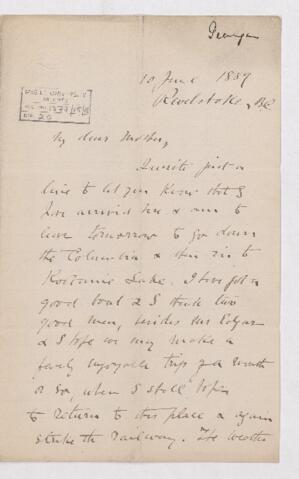 10 June 1889
Revelstoke, BC
My dear Mother,
I write just a
line to let you know that I
have arrived here & am to
leave tomorrow to go down
the Columbia & then in to
Kootanie Lake. I have got a
good boat & I think two
good men, besides Mr
& I hope we may make a
fairly enjoyable trip for a month
or so, when I shall hope
to return to this place & again
strike the railway. The weather